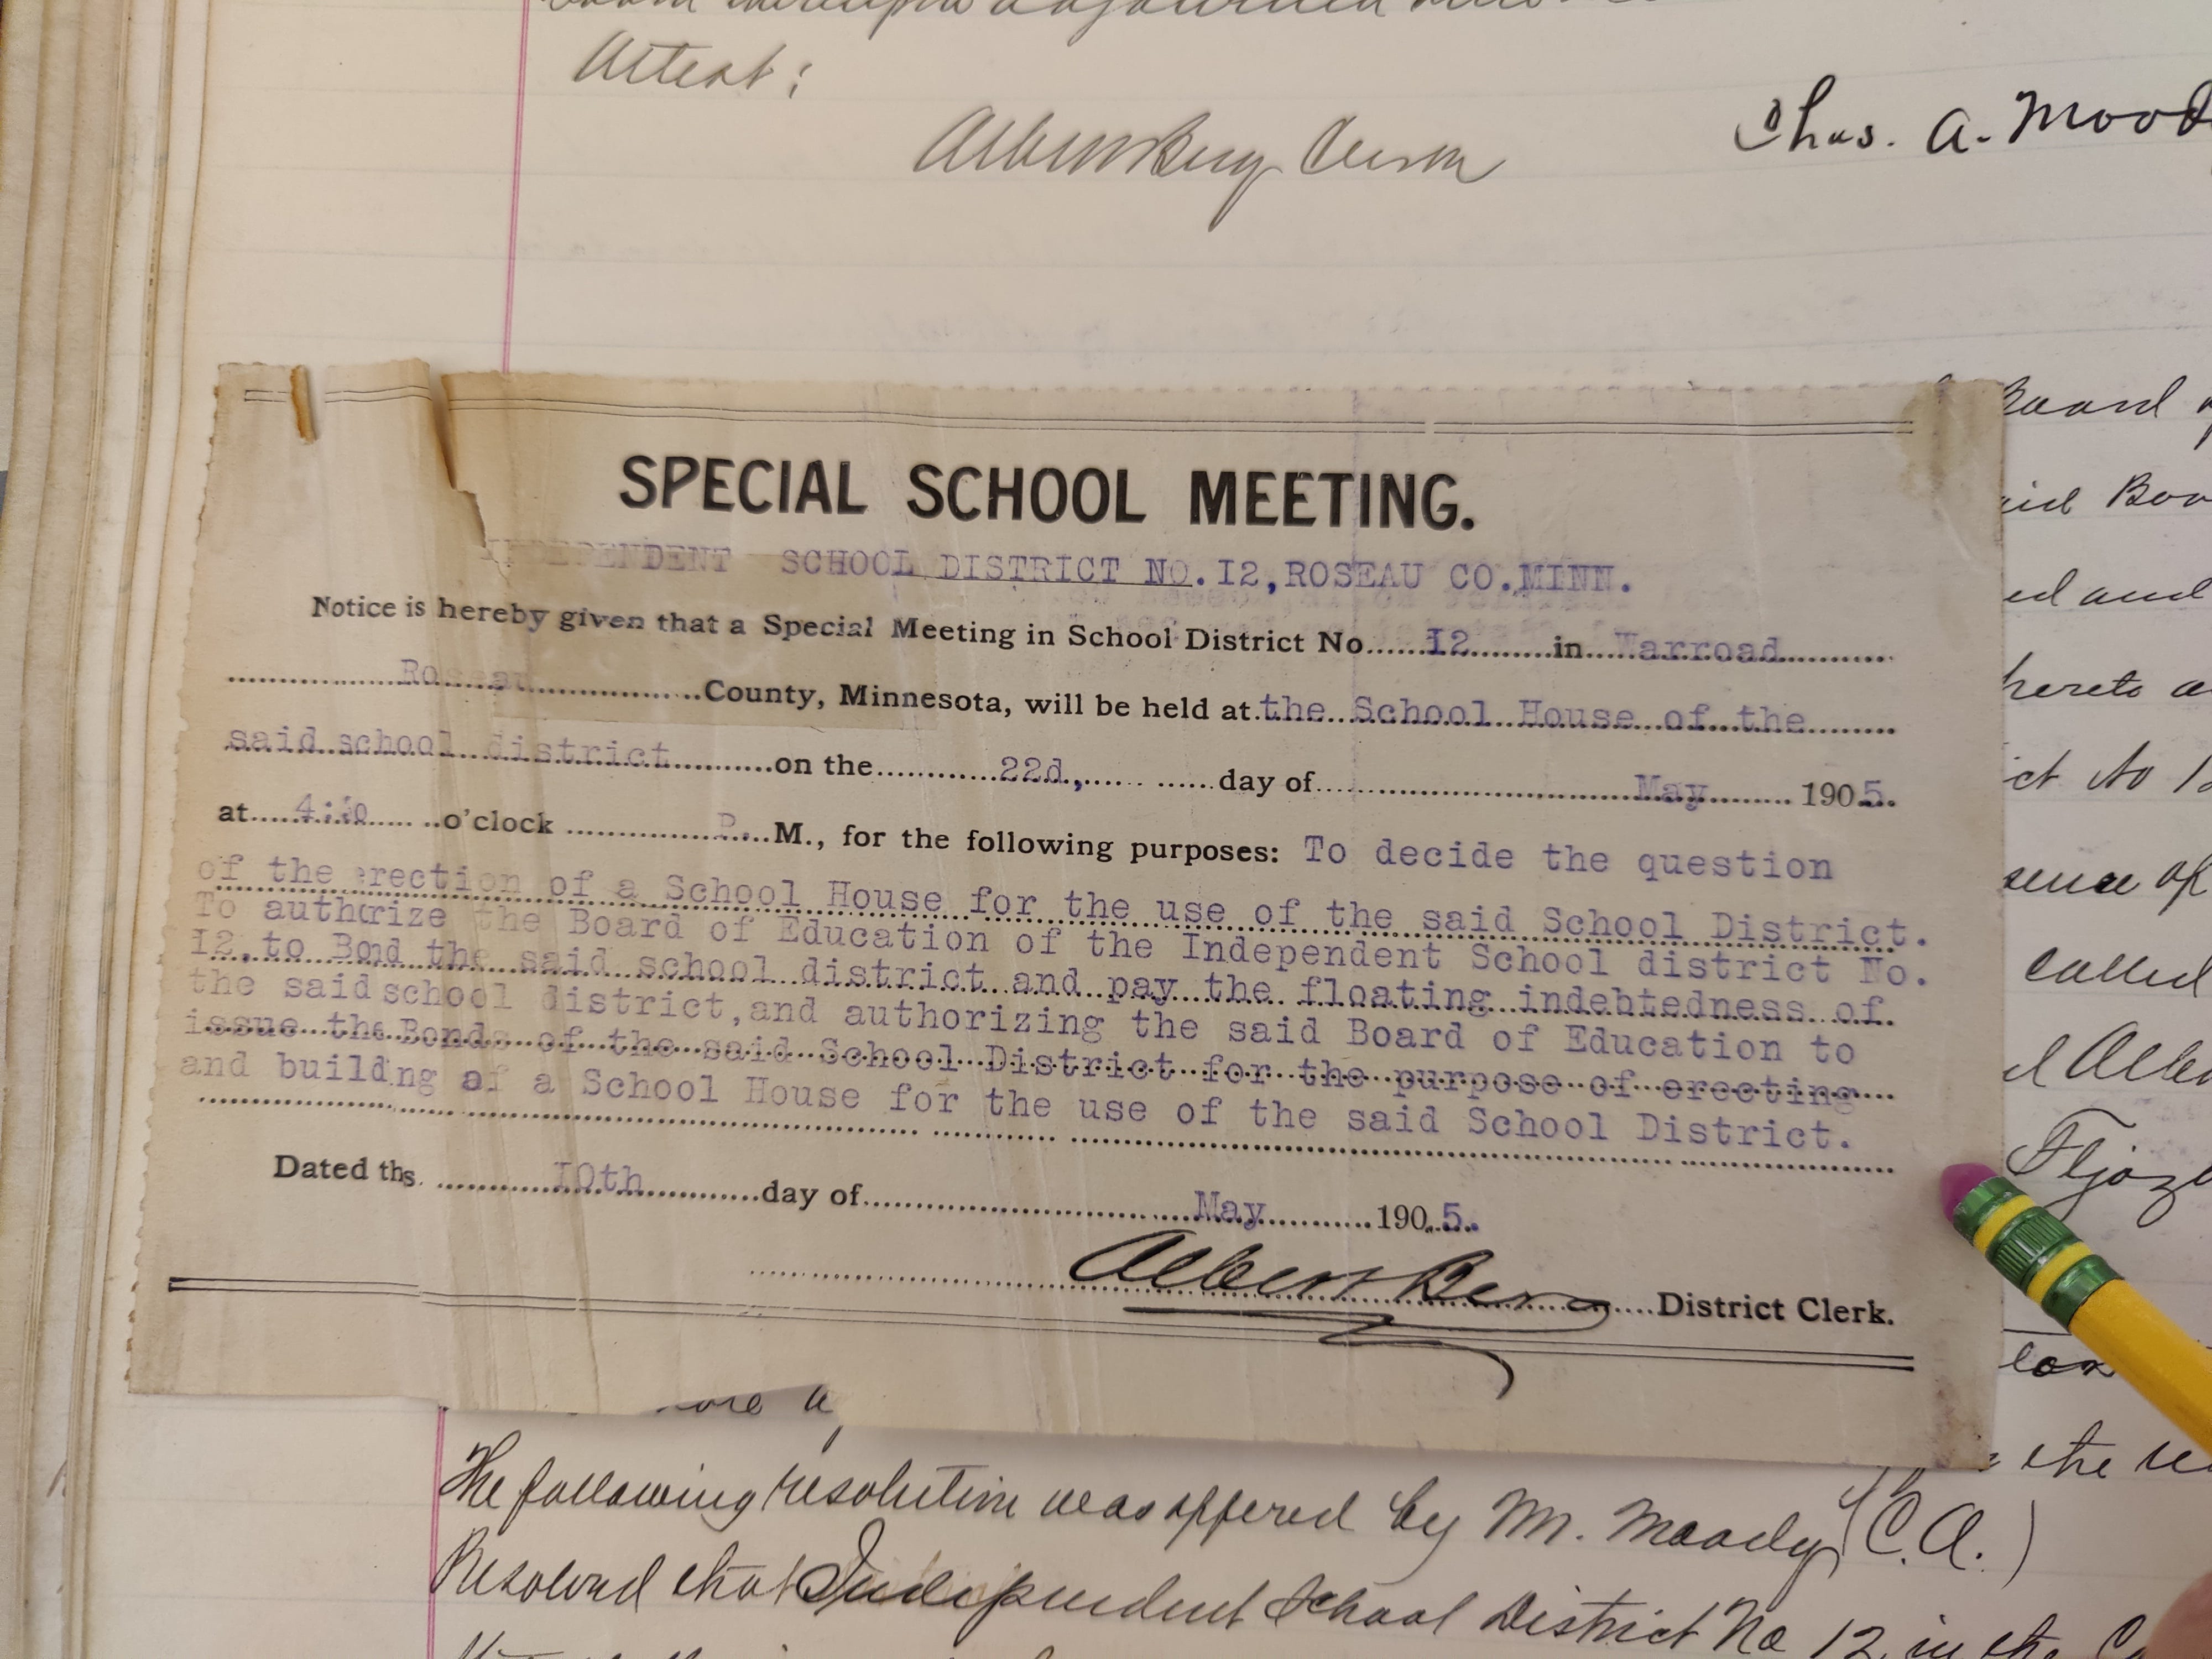 Attest:
Albert Berg Clerk
Chas. A. Mood
SPECIAL SCHOOL MEETING.
INDEPENDENT SCHOOL DISTRICT NO. 12, ROSEAU CO. MINN.
Notice is hereby given that a Special Meeting in School District No. 12 in Warroad
Roseau County, Minnesota, will be held at the School House of the
said school district on the 22d, day of May 1905.
at 4:30 o'clock P. M., for the following purposes: To decide the question
of the erection of a School House for the use of the said School District.
To authorize the Board of Education of the Independent School district No.
12, to Bond the said school district and pay the floating indebtedness of
the said school district, and authorizing the said Board of Education to
issue the Bonds of the said School District for the purpose of erecting
and building of a School House for the use of the said School District.
Dated ths 10th day of May 1905.
Albert Berg District Clerk.
Board of
Boa
ed and
hereto a
ct No 12
sence of
called
d Alber
the
The following resolution was offered by M. Moody (C. A.)
Resolved that Independent School District No 12 in the Co